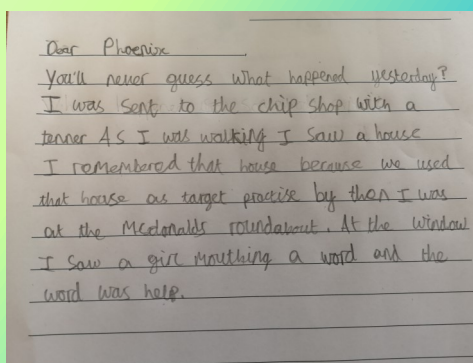 Dear Phoenix
You'll never guess what happened yesterday?
I was sent to the chip shop with a
tenner As I was walking I saw a house
I remembered that house because we used
that house as target practise by then I was
at the Mcdonalds roundabout. At the window
I saw a girl mouthing a word and the
word was help.